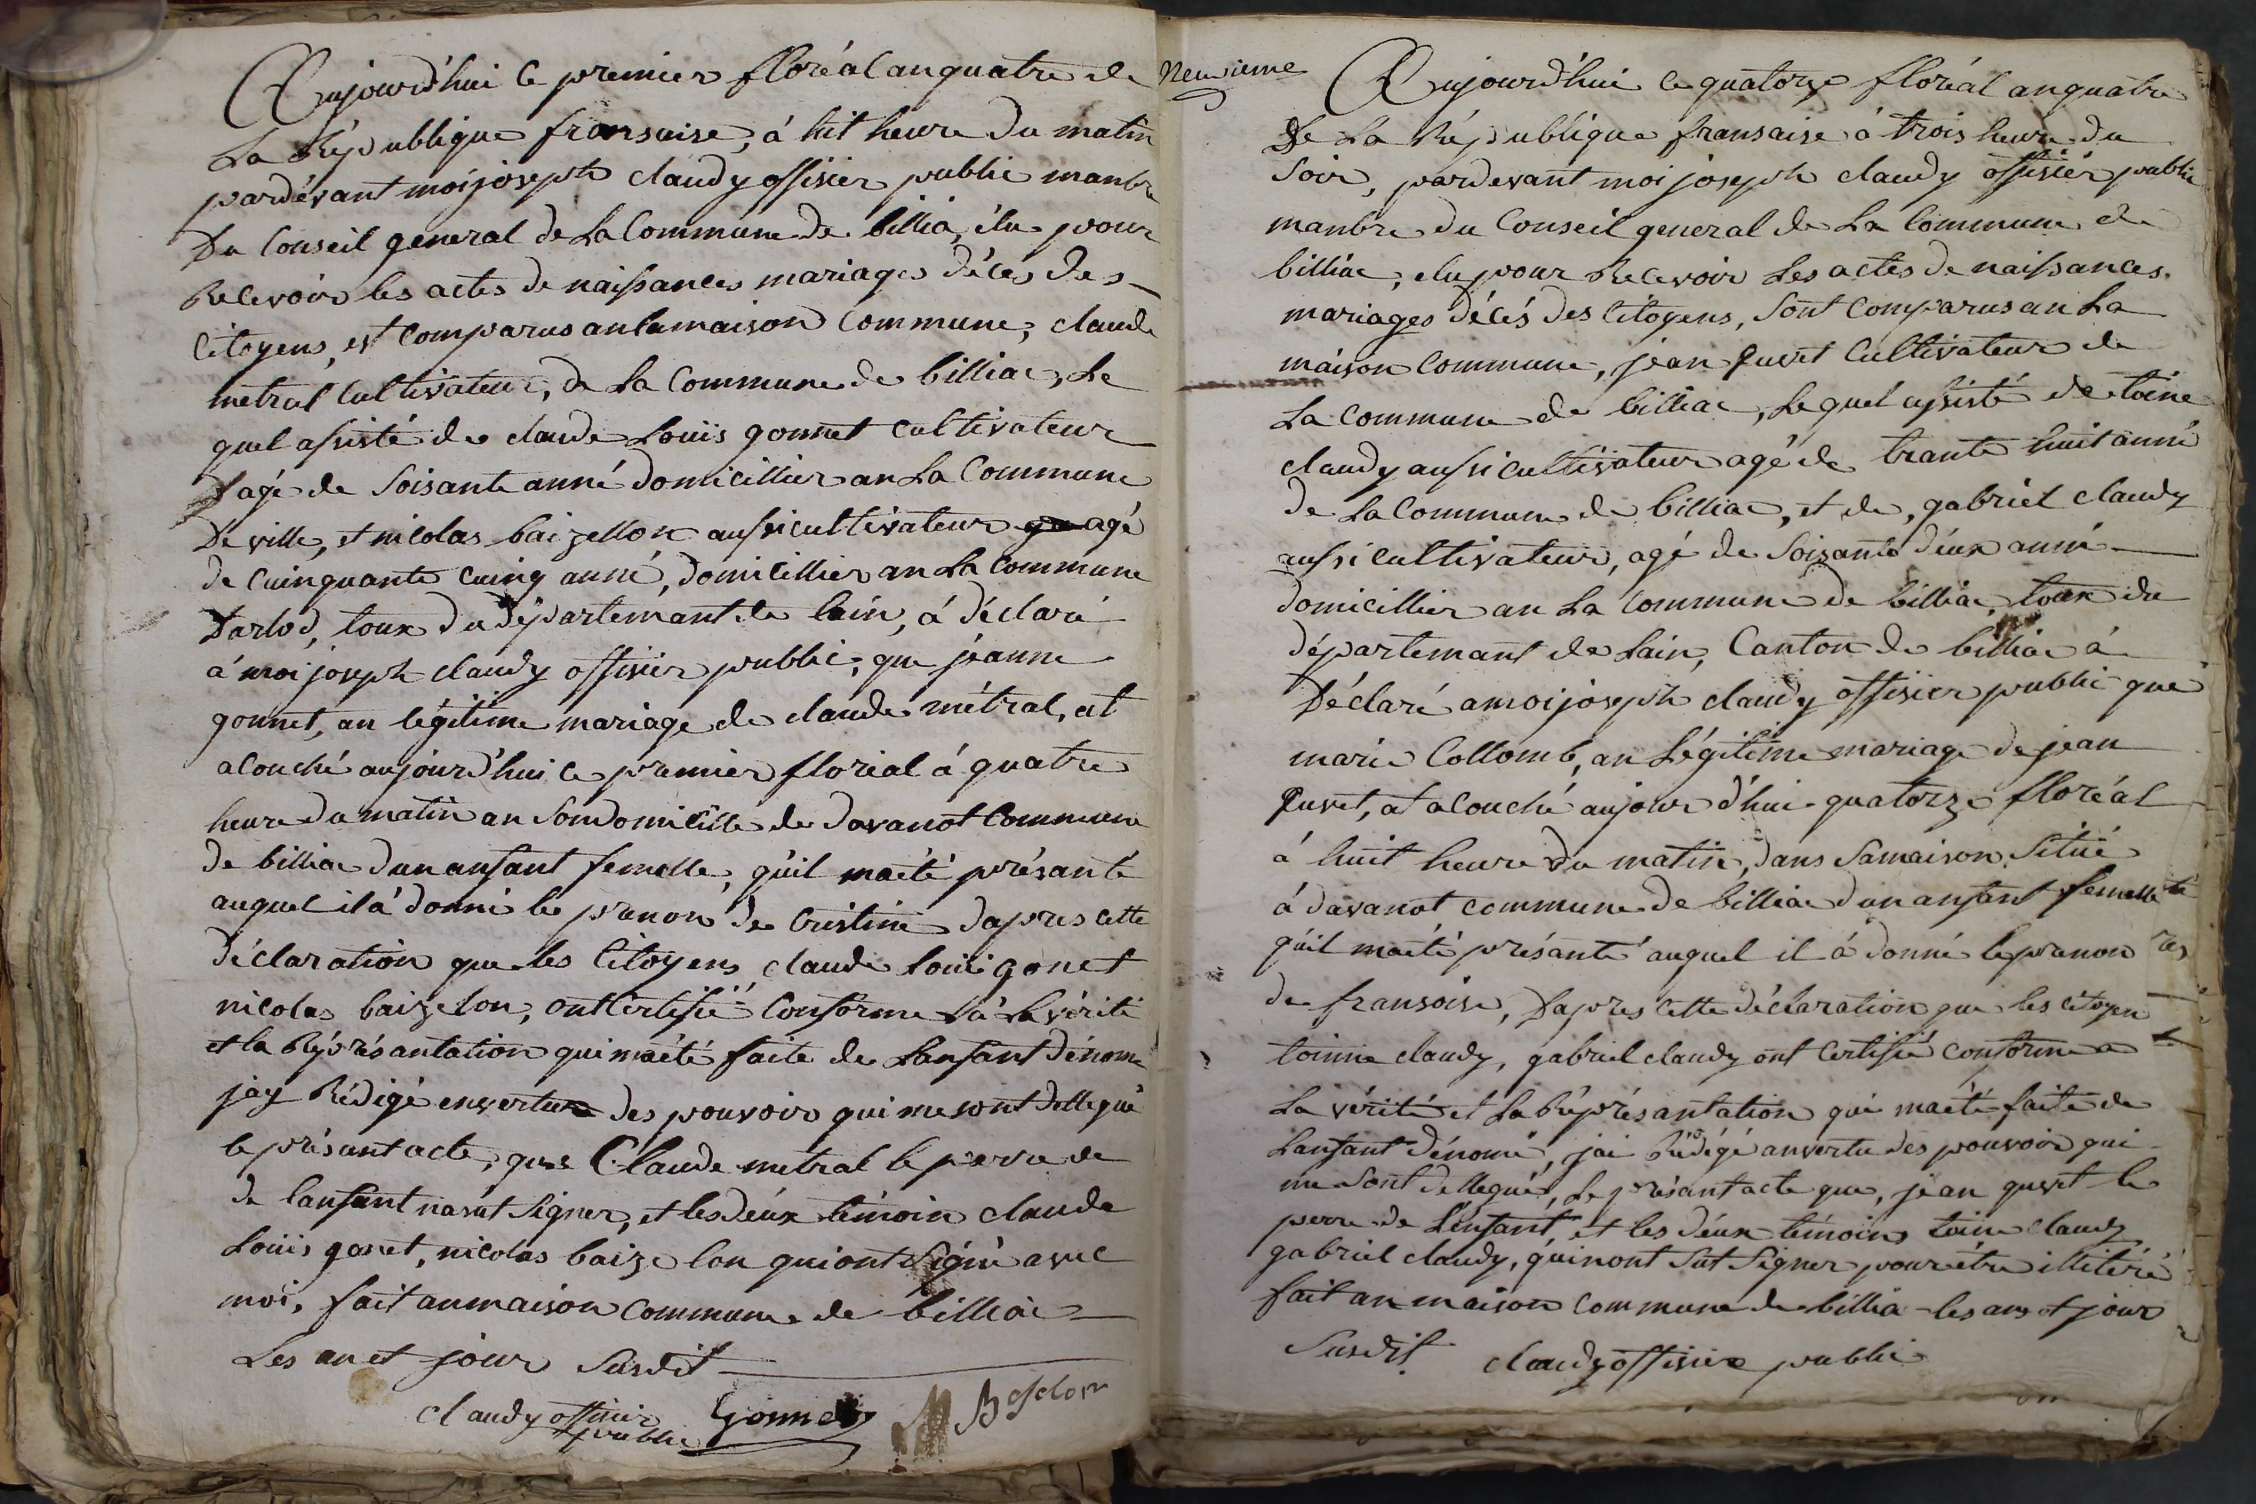 Aujourd'hui le premier floréal an quatre de
La République fransaise, á huit heure du matin
pardévant moi joseph claudy offisier public manbre
Du Conseil general de La Commune de billia, élu pour
Recevoir les actes de naissances mariages décés des
Citoyens, est comparus an la maison Commune, claude
metral Cultivateur, de La Commune de billiac, Le
quel assisté de claude Louis gonnet cultivateur
agé de Soisante anné domicillier an La Commune
De ville, et nicolas baizellon aussi cultivateur agé
de cuinquante cuinq anné, domicillier an La Commune
Darlod, toux du département de lain, á déclaré
á moi joseph claudy offisier public, que jeanne
gonnet, an légitime mariage de claude métral, at
acouché aujourd'hui le premier floréal á quatre
heure du matin an Son domicille de davanot Commune
de billiac dun anfant femelle, qu'il maété présanté
auquel il á donné le prenon de Cristine dapres cette
déclaration que les Citoyens claude Louis gonet
nicolas baizelon, ont Certifié Conforme á La vérité
et la Réprésantation qui maété faite de Lanfant dénomé
jay Rédigé envertu des pouvoir qui me sont dellegué
le présant acte, que Claude metral le perre de
de lanfant nasut Signer, et les deux témoin claude
Louis gonet, nicolas baize lon qui ont Signé avec
moi, fait an maison commune de billiac
Les an et jour Susdit
claudy offisier public Gonnet Beselon
Neuvieme
Aujourd'hui le quatorze floréal an quatre
De La République fransaise á trois heure du
Soir, pardevant moi joseph claudy offisiér public
manbre du Conseil general de La Commune de
billiac, élu pour Recevoir Les actes de naissances.
mariages décés des Citoyens, Sont Comparus an La
maison Commune, jean quvet Cultivateur de
La commune de billiac, Le quel assisté de toine
claudy aussi cultivateur agé de trante huit anné
de La Commune de billiac, et de, gabriel claudy
aussi cultivateur, agé de Soisante deux anné
domicillier an La Commune de billiac, toux du
département de Lain, Canton de billiac á
Déclaré a moi joseph claudy offisier public que
marie Collomb, an Légitime mariage de jean
quvet, at acouché aujour d'hui quatorze floréal
á huit heure du matin, dans Samaison, Situé
á davanot commune de billiac dun anfant femelle
qu'il maété présanté auquel il á donné le prenon
de fransoise, Dapres cette déclaration que les citoyen
toinne claudy, gabriel claudy ont Certifié conforme a
La vérité et La Réprésantation qui maété faite de
Lanfant dénomé, jai Rédigé anvertu des pouvoir qui
me Sont dellegués, Le présant acte que, jean quvet le
perre de Lenfant, et les deux témoins toine claudy
gabriel claudy, qui nont Sut Signer pour étre illitéré
fait an maison commune de billia les ans et jour
Susdit. claudy offisier public